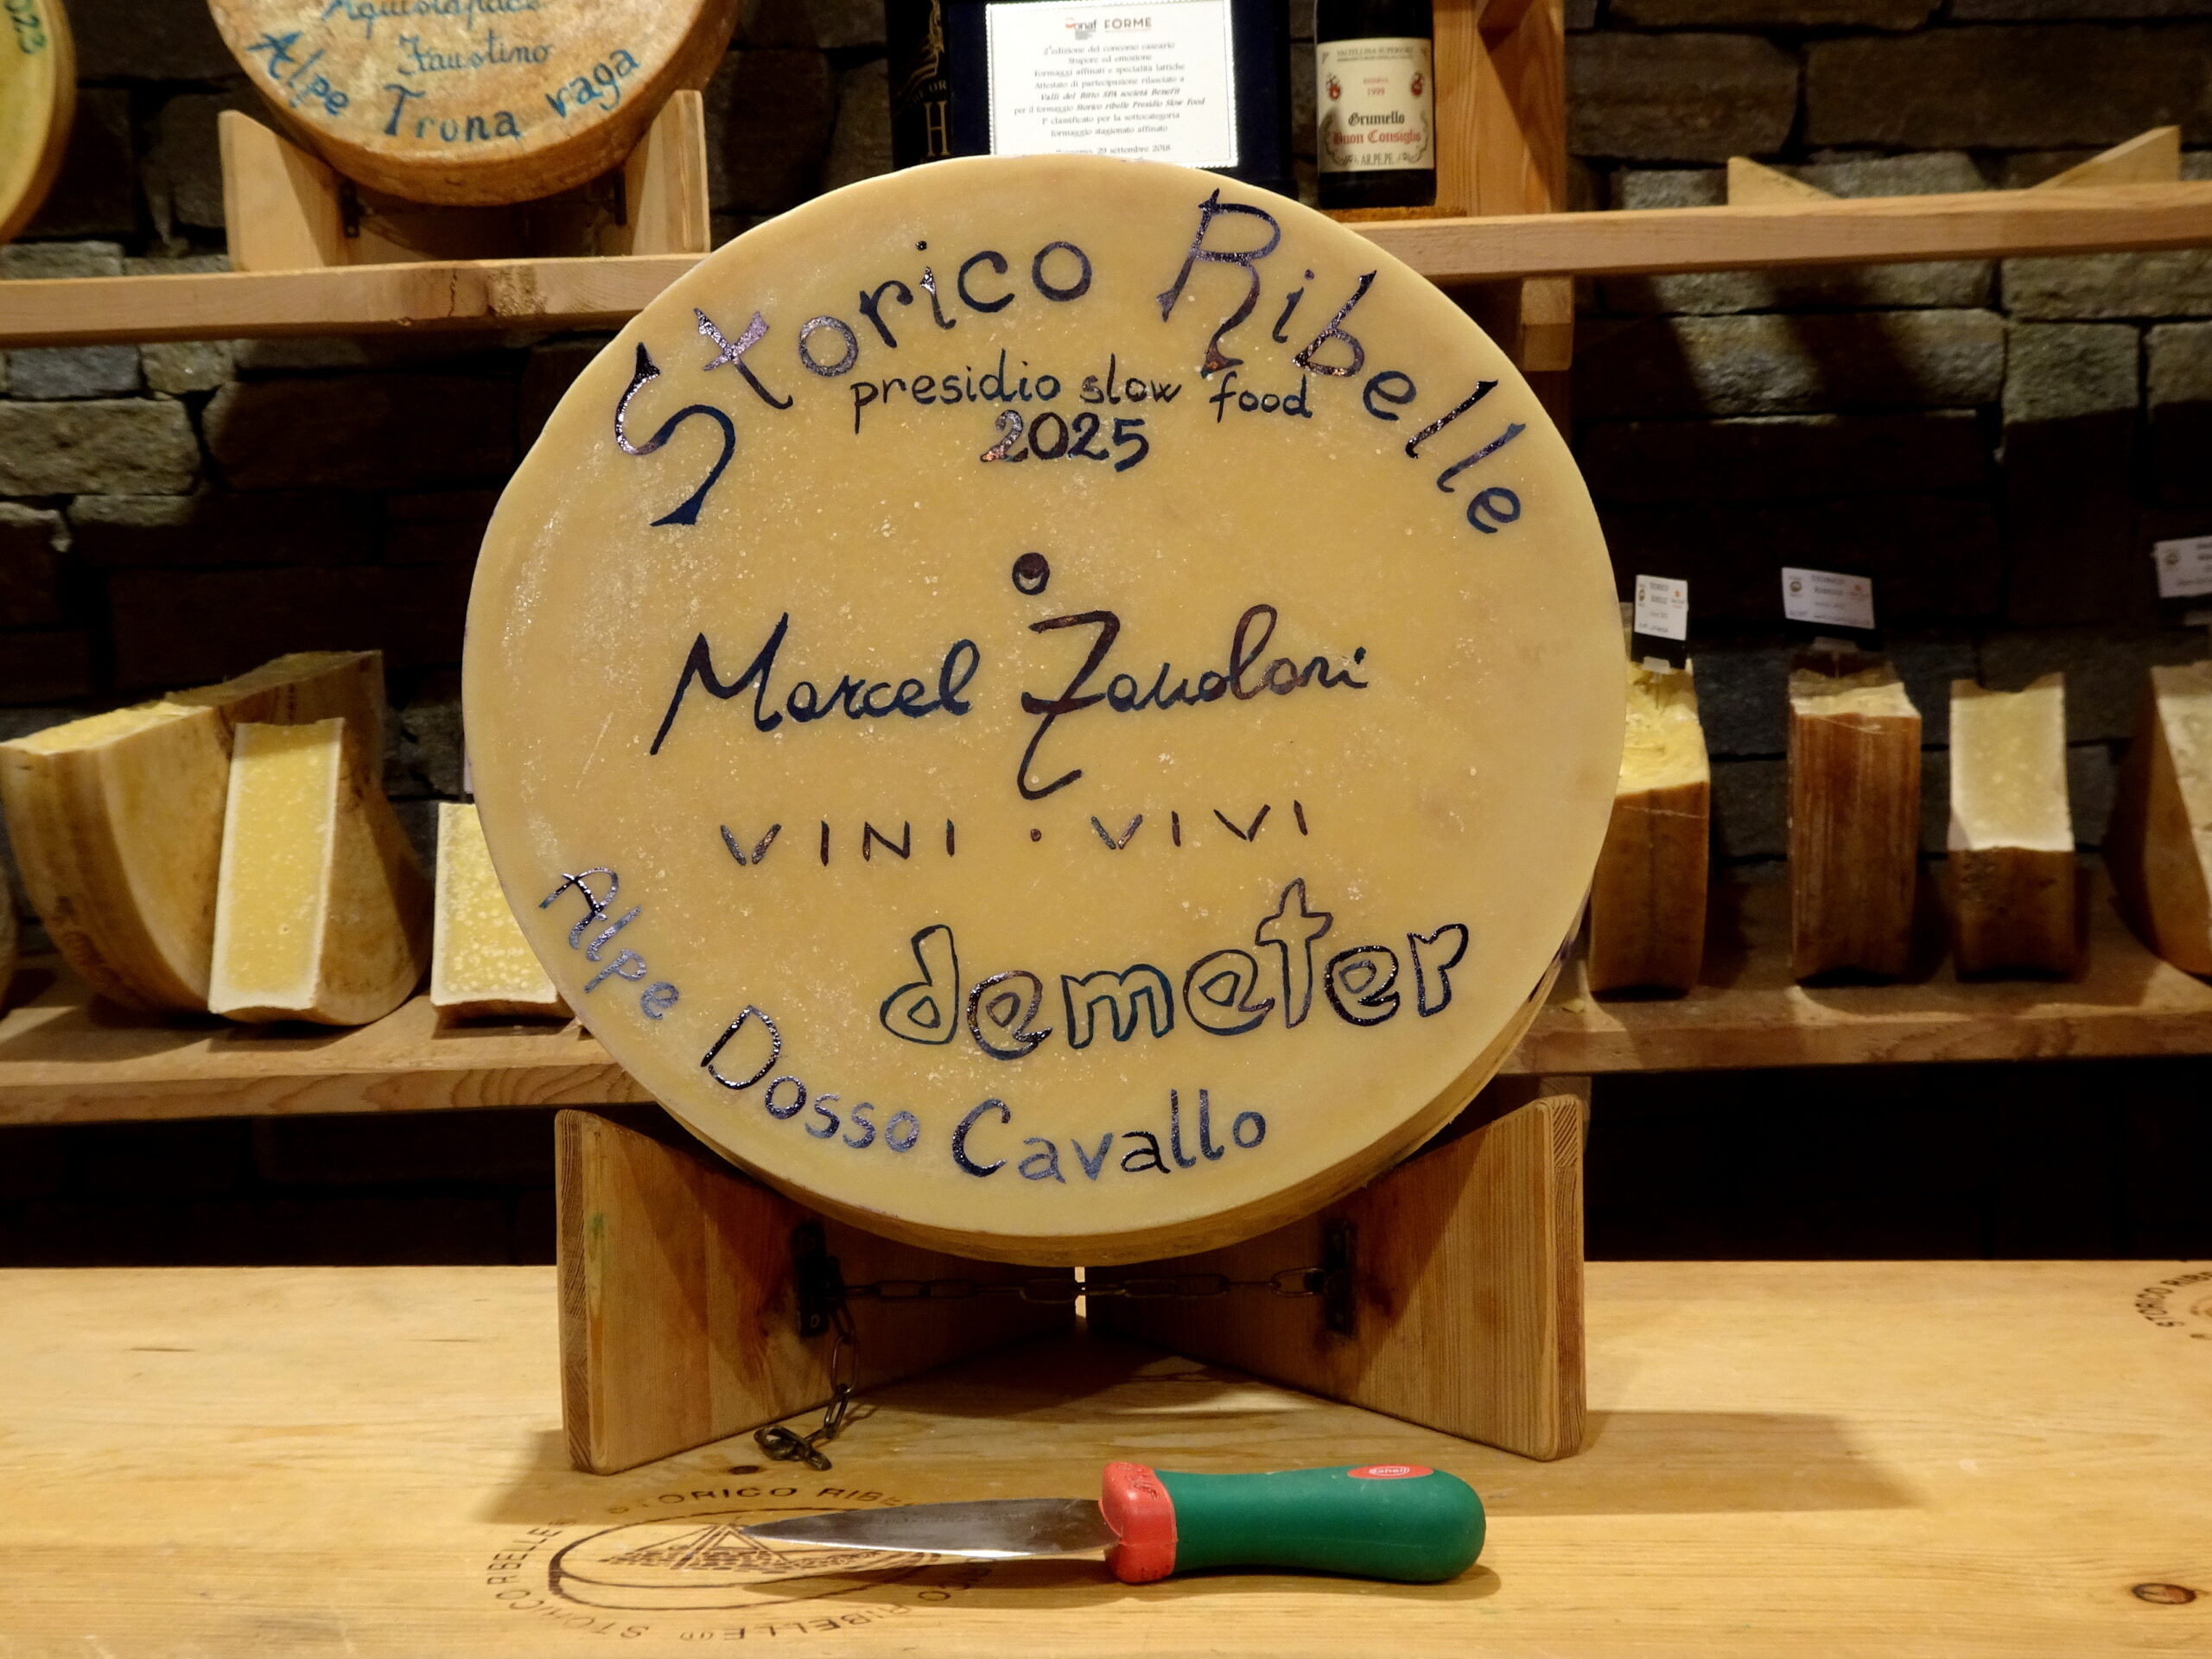 023
Acquistapace
Faustino
Alpe Trona vaga
onaf FORME
2ª edizione del concorso caseario
Stupore ed emozione
Formaggi affinati e specialità lattiche
Attestato di partecipazione rilasciato a
Valli del Bitto SPA società Benefit
per il formaggio Storico ribelle Presidio Slow Food
1° classificato per la sottocategoria
formaggio stagionato affinato
29 settembre 2018
VALTELLINA SUPERIORE
RISERVA
1999
Grumello
Buon Consiglio
AR.PE.PE.
Storico Ribelle
presidio slow food
2025
Marcel Zanolari
VINI · VIVI
demeter
Alpe Dosso Cavallo
STORICO RIBELLE
STORICO RIBELLE